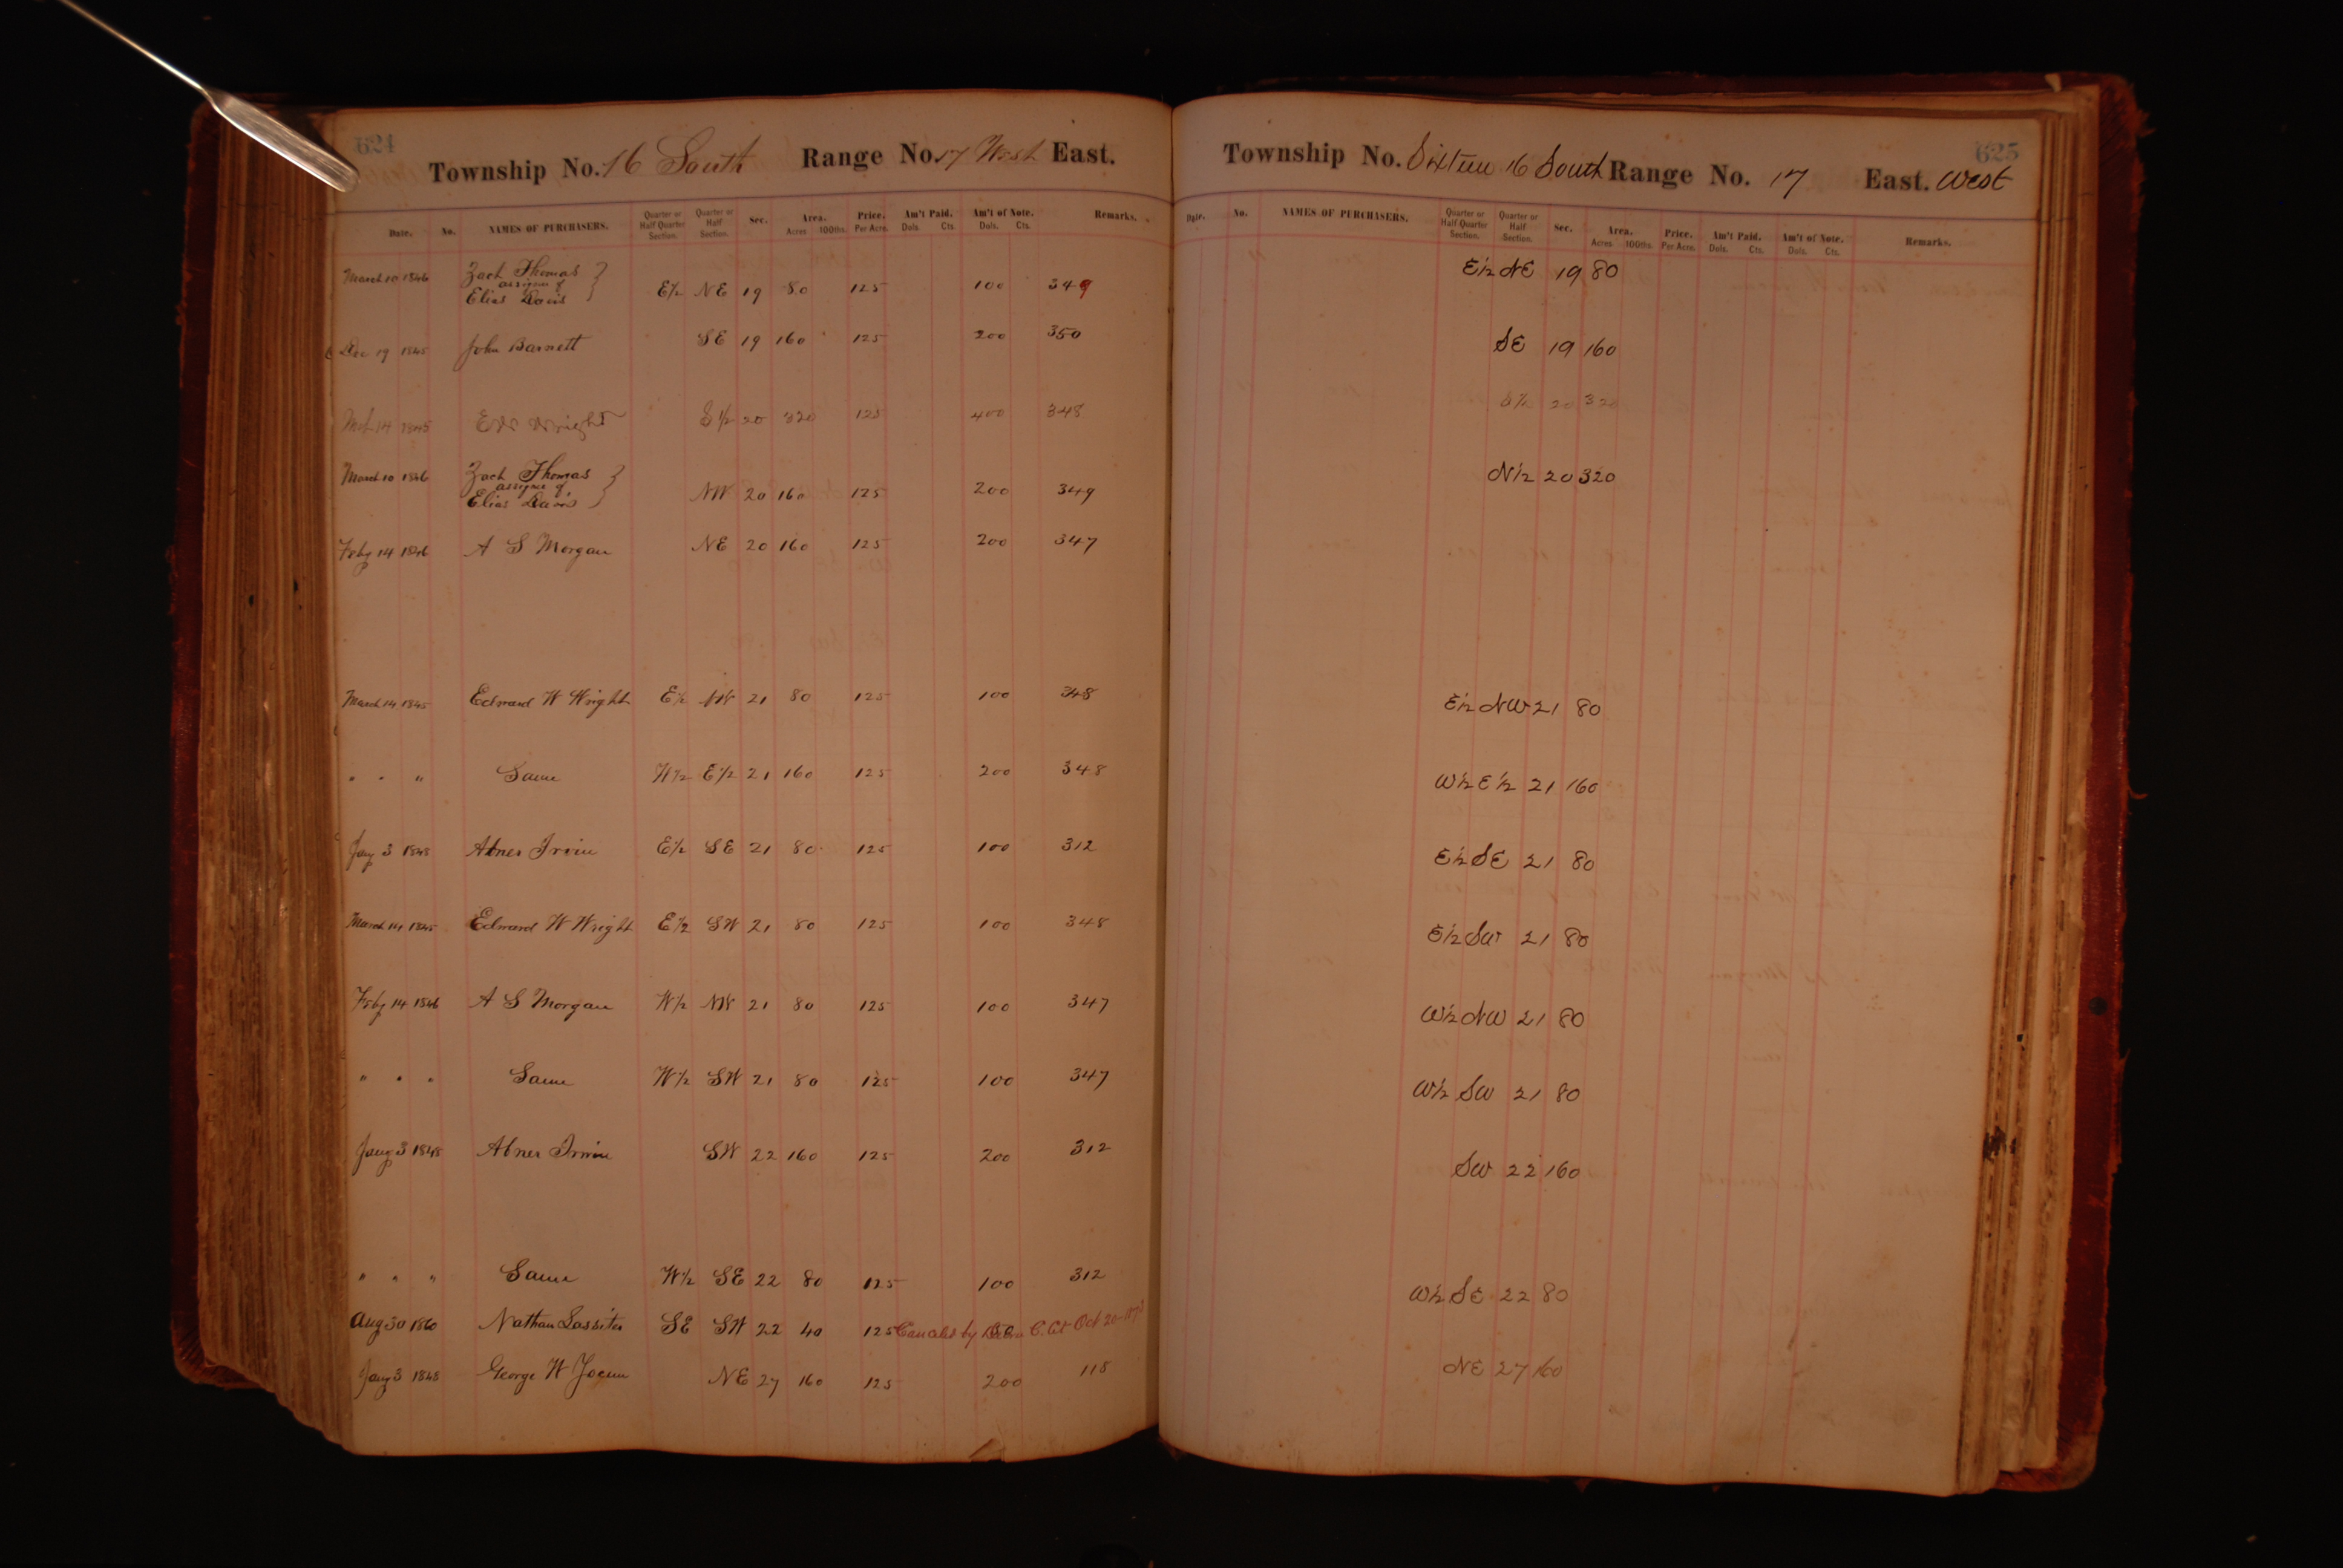 624
Township No. 16 South Range No. 17 West East.
Date. No. NAMES OF PURCHASERS. Quarter or Half Quarter Section. Quarter or Half Section. Sec. Area. Acres 100ths. Price. Per Acre. Am't Paid. Dols. Cts. Am't of Note. Dols. Cts. Remarks.
March 10 1846 Zach Thomas
assignee of
Elias Davis E½ NE 19 80 125 100 349
Dec 19 1845 John Barnett SE 19 160 125 200 350
Mch 14 1845 E W Wright S½ 20 320 125 400 348
March 10 1846 Zach Thomas
assignee of
Elias Davis NW 20 160 125 200 349
Feby 14 1846 A S Morgan NE 20 160 125 200 347
March 14 1845 Edward W Wright E½ NW 21 80 125 100 348
" " " Same W½ E½ 21 160 125 200 348
Jany 3 1848 Abner Irvin E½ SE 21 80 125 100 312
March 14 1845 Edward W Wright E½ SW 21 80 125 100 348
Feby 14 1846 A S Morgan W½ NW 21 80 125 100 347
" " " Same W½ SW 21 80 125 100 347
Jany 3 1848 Abner Irvin SW 22 160 125 200 312
" " " Same W½ SE 22 80 125 100 312
Aug 30 1860 Nathan Lassiter SE SW 22 40 125 Canceled by C. Ct Oct 20
Jany 3 1848 George W Jocum NE 27 160 125 200 115
625
Township No. Sixteen 16 South Range No. 17 East. West
Date. No. NAMES OF PURCHASERS. Quarter or Half Quarter Section. Quarter or Half Section. Sec. Area. Acres 100ths. Price. Per Acre. Am't Paid. Dols. Cts. Am't of Note. Dols. Cts. Remarks.
E½ NE 19 80
SE 19 160
S½ 20 320
N½ 20 320
E½ NW 21 80
W½ E½ 21 160
E½ SE 21 80
E½ SW 21 80
W½ NW 21 80
W½ SW 21 80
SW 22 160
W½ SE 22 80
NE 27 160